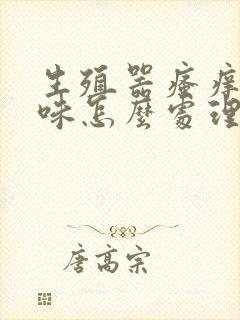 生殖器瘙痒
咪怎麼處理
唐高宗